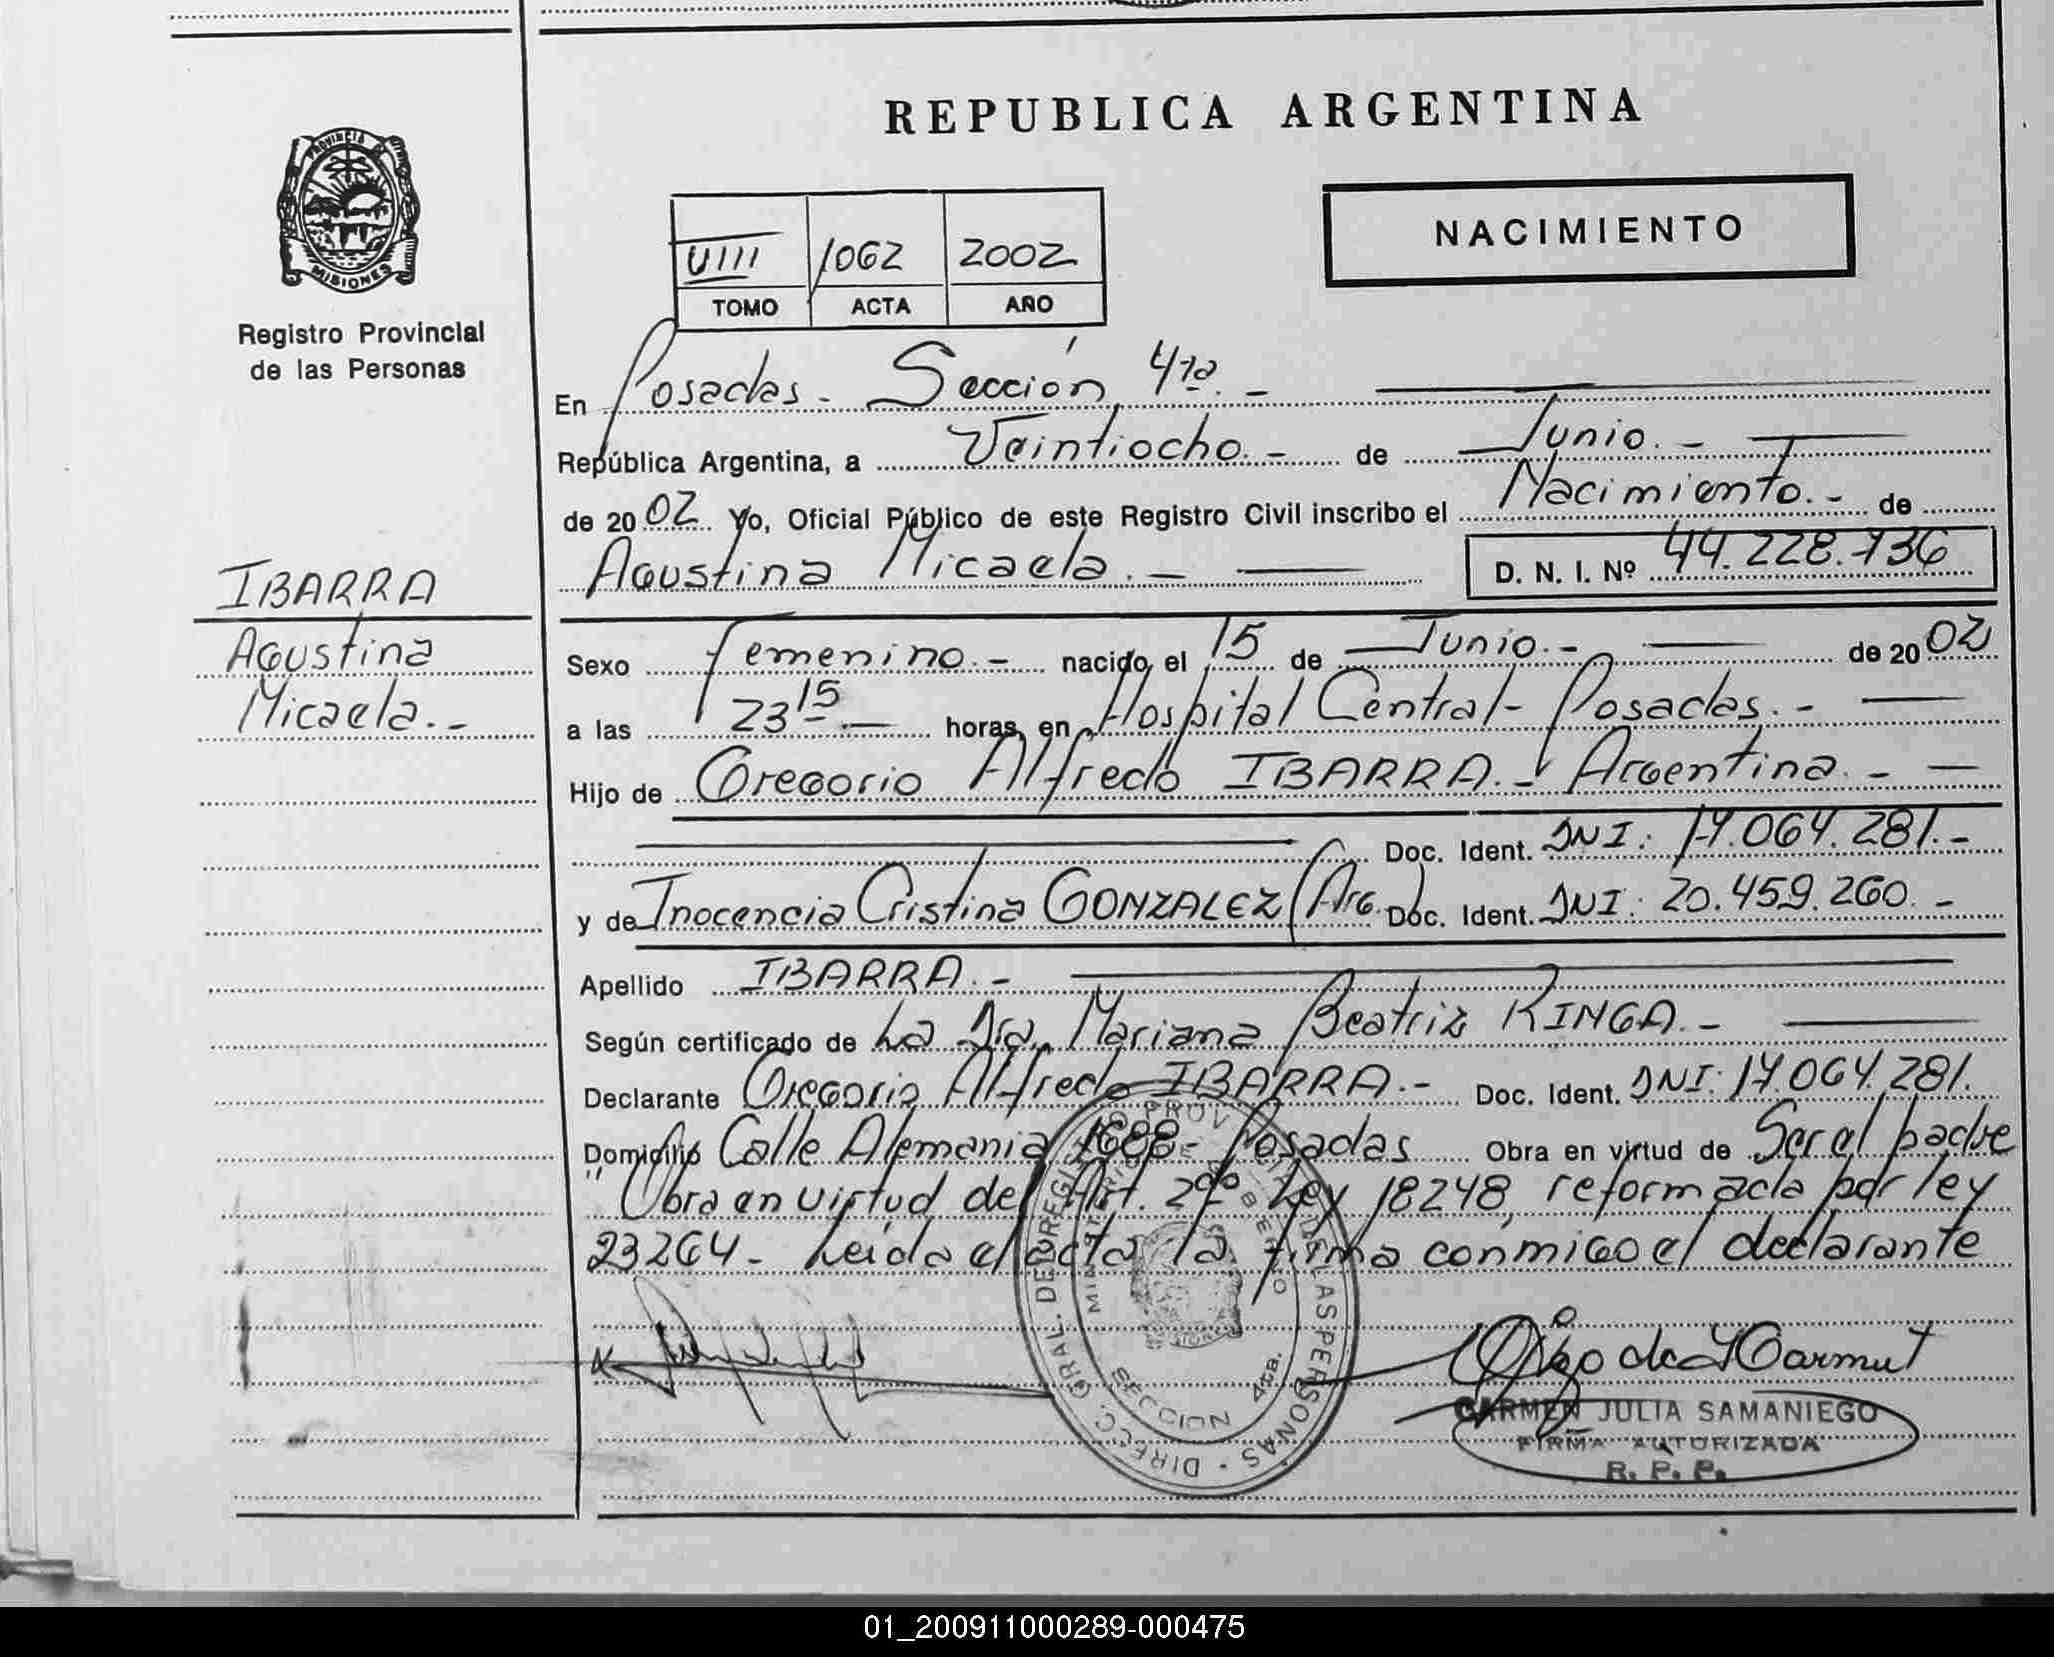 REPUBLICA ARGENTINA
PROVINCIA DE
MISIONES
Registro Provincial
de las Personas
NACIMIENTO
VIII 1062 2002
TOMO ACTA AÑO
En Posadas - Sección 4ta. -
República Argentina, a Veintiocho. - de Junio. -
de 2002 Yo, Oficial Público de este Registro Civil inscribo el Nacimiento. - de
Agustina Micaela. - D. N. I. Nº 44.228.736
IBARRA
Agustina
Micaela. -
Sexo Femenino. - nacido el 15 de Junio. - de 2002
a las 23 15 - horas, en Hospital Central - Posadas. -
Hijo de Gregorio Alfredo IBARRA. - Argentina. -
Doc. Ident. DNI: 17.064.281. -
y de Inocencia Cristina GONZALEZ (Arg. Doc. Ident. DNI: 20.459.260. -
Apellido IBARRA. -
Según certificado de La Dra. Mariana Beatriz RINGA. -
Declarante Gregorio Alfredo IBARRA. - Doc. Ident. DNI: 17.064.281.
Domicilio Calle Alemania 1688 - Posadas Obra en virtud de Ser el padre
"Obra en virtud del Art. 2do Ley 18248, reformada por ley
23264 - Leida el acta la firma conmigo el declarante
DIRECC. GRAL. DE REGISTRO PROVINCIAL DE LAS PERSONAS
MINISTERIO DE GOBIERNO
SECCION 4ta.
CARMEN JULIA SAMANIEGO
FIRMA AUTORIZADA
R. P. P.
01_200911000289-000475